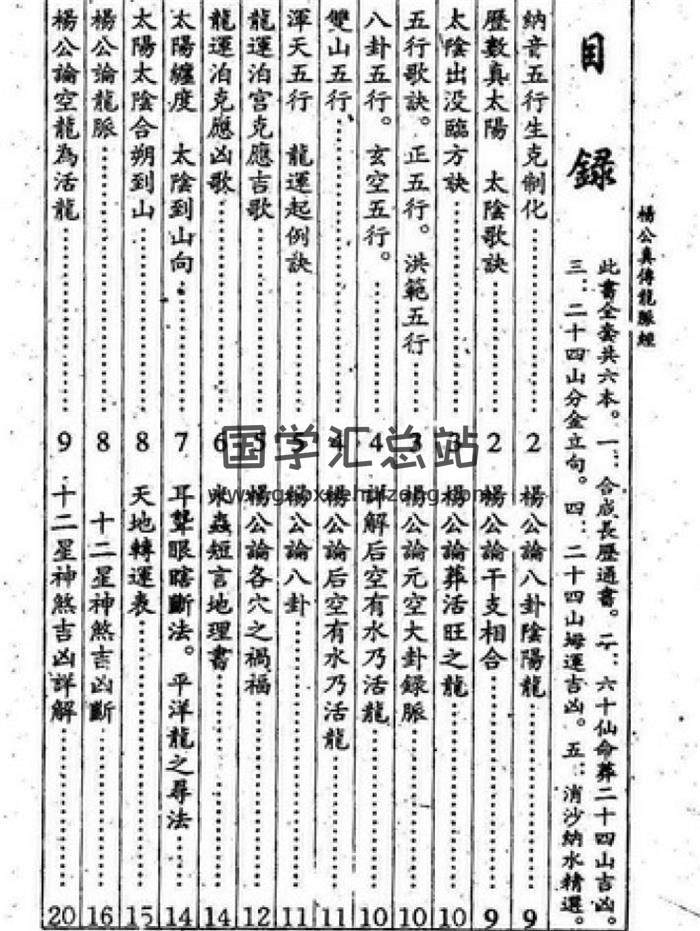 楊公真傳龍脈經
目錄
此書全套共六本。一：合成長歷通書。二：六十仙命葬二十四山吉凶。
三：二十四山分金立向。四：二十四山姆運吉凶。五：消沙納水精選。
納音五行生克制化……2
歷數真太陽 太陰歌訣……2
太陰出没臨方訣……3
五行歌訣。正五行。洪範五行……3
八卦五行。玄空五行。……4
雙山五行……4
渾天五行 龍運起例訣……5
龍運泊宫克應吉歌……5
龍運泊克應凶歌……6
太陽纏度 太陰到山向……7
太陽太陰合朔到山……8
楊公論龍脈……8
楊公論空龍為活龍……9
楊公論八卦陰陽龍……9
楊公論干支相合……9
楊公論葬活旺之龍……10
楊公論元空大卦錄脈……10
詳解后空有水乃活龍……10
楊公論后空有水乃活龍……11
楊公論八卦……11
楊公論各穴之禍福……12
米蟲短言地理書……14
耳聾眼瞎斷法。平洋龍之尋法……14
天地轉運表……15
十二星神煞吉凶斷……16
十二星神煞吉凶詳解……20
国学汇总站